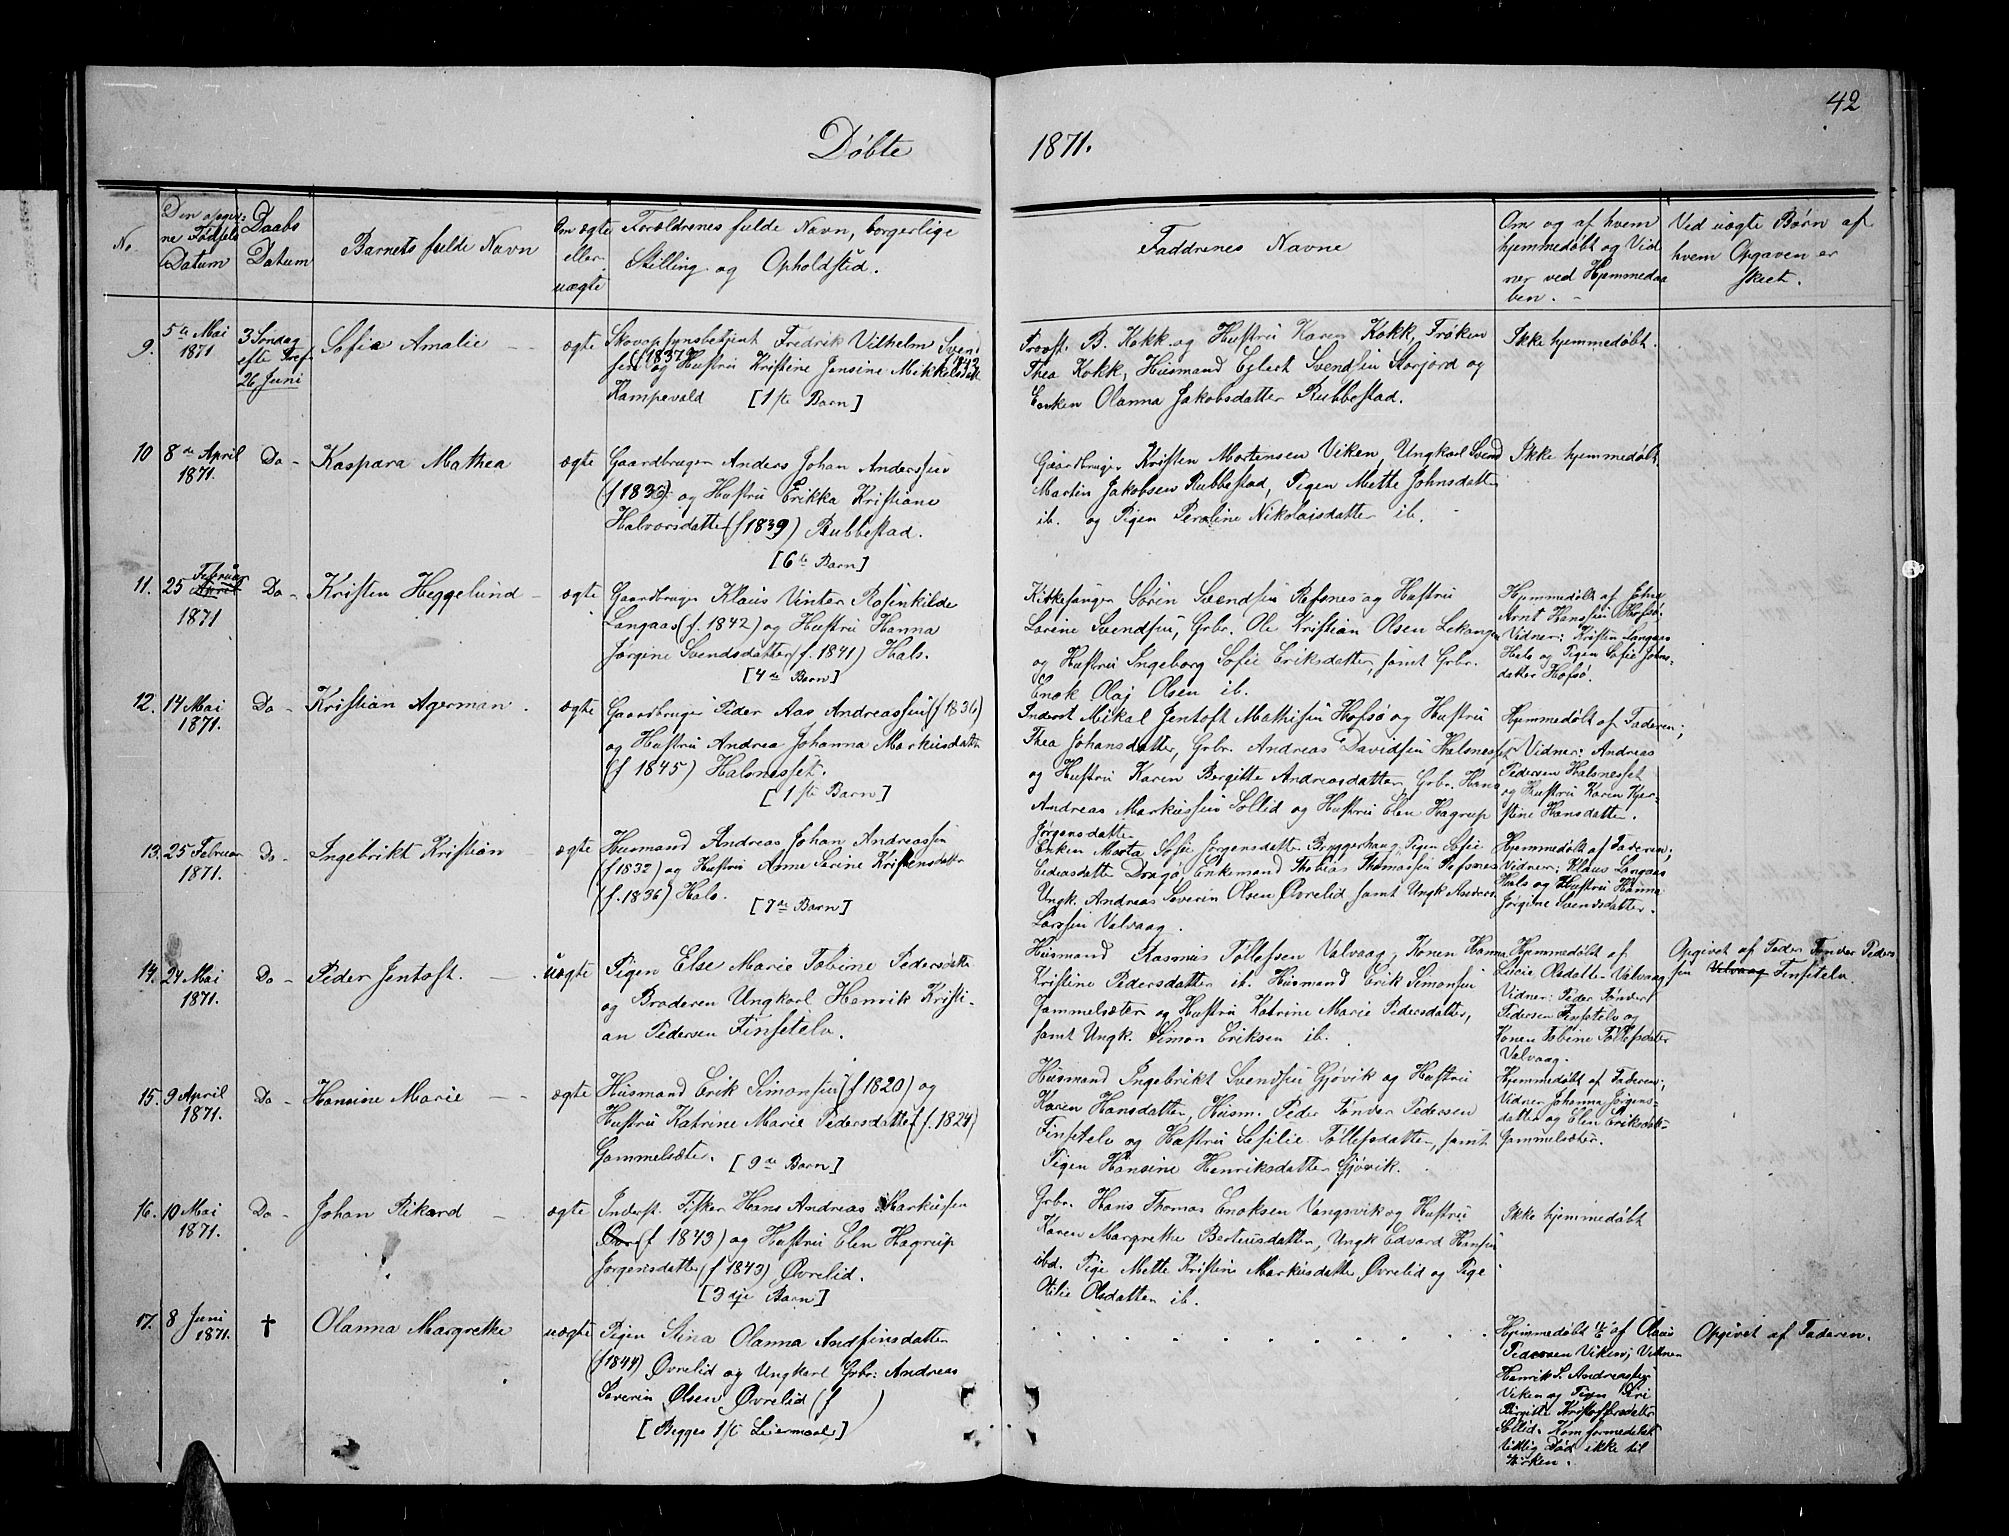 42
Døbte
1871.
No.
Den opgiv-
ne Fødsels
Datum
Daabs
Datum
Barnets fulde Navn
Om ægte
eller
uægte
Forældrenes fulde Navn, borgerlige
Stilling og Opholdsted.
Faddrenes Navne
Om og af hvem
hjemmedøbt og Vid
ner ved Hjemmedaa
ben.
Ved uægte Børn af
hvem Opgaven er
skeet.
9.
5te Mai
1871
3 Søndag
efte Tref
26 Juni
Sofie Amalie
ægte
Skovopsynsbetjent Fredrik Vilhelm Svend
sen (f 1837) og Hustru Kristine Jensine Mikkelsdatt 1842
Kampevold [1ste Barn]
Provst. B. Kokk og Hustru Karen Kokk, Frøken
Thea Kokk, Husmand Eglert Svendsen Storjord og
Enken Olanna Jakobsdatter Rubbestad.
Ikke hjemmedøbt.
10
8de April
1871.
Do -
Kaspara Mathea
ægte
Gaardbruger Anders Johan Anderssen
(f 183) og Hustru Erikka Kristiane
Halvorsdatter (f 1839) Rubbestad.
[6te Barn]
Gaardbruger Kristen Mortensen Viken, Ungkarl Svend
Martin Jakobsen Rubbestad, Pigen Mette Johnsdatter
ib. og Pigen Peroline Nikolaisdatter ib.
Ikke hjemmedøbt
11.
25 April Februar
1871
Do -
Kristen Heggelund
ægte
Gaardbruger Klaus Vinter Rosenkilde
Langaas (f. 1842) og Hustru Hanna
Jørgine Svendsdatter (f. 1841) Hals.
[4de Barn]
Kirkesanger Sørin Svendsen Refsnes og Hustru
Lorine Svendsen, Grbr. Ole Kristian Olsen Lekanger
og Hustru Ingeborg Sofie Eriksdatter, samt Grbr.
Enok Olaj Olsen ib.
Hjemmedøbt af John
Arnt Hanssen Hofsø.
Vidner: Kristen Langaas
Hals og Pigen Sofie Johns-
datter Hofsø.
12.
14 Mai
1871.
Do -
Kristian Agerman
ægte
Gaardbruger Peder Aas Andreassen (f 1836)
og Hustru Andrea Johanna Markusdatter
(f 1845) Halsnesset.
[1ste Barn]
Inderst Mikal Jentoft Mathisen Hofsø og Hustru
Thea Johansdatter, Grbr. Andreas Davidsen Halsnesset
og Hustru Karen Bergitte Andreasdatter, Grbr. Hans
Andreas Markussen Sollid og Hustru Elen Hagrup
Jørgensdatter
Hjemmedøbt af Faderen;
Vidner: Andreas
Pedersen Halsnesset
og Hustru Karen Kjer-
stine Hansdatter.
13.
25 Februar
1871.
Do -
Ingebrikt Kristian
ægte
Husmand Andreas Johan Andreassen
(f 1832) og Hustru Anne Serine Kristensdatter
(f. 1836) Hals.
[7de Barn]
Enken Marta Sofie Jørgensdatter Byggerhaug, Pigen Sofie
Dragø, Enkemand Thobias Thomassen Refsnes
Ungk. Andreas Severin Olsen Øvrelid samt Ungk Anders
Larssen Valvaag.
Hjemmedøbt af Faderen;
Vidner: Klaus Langaas
Hals og Hustru Hanna
Jørgine Svendsdatter.
14.
24 Mai
1871.
Do -
Peder Jentoft.
uægte
Pigen Else Marie Tobine Pedersdatter
og Broderen Ungkarl Henrik Kristi-
an Pedersen Finsetelv.
Husmand Rasmus Tollefsen Valvaag, Konen Hanna
Kristine Pedersdatter ib. Husmand Erik Simonsen
Gammelsæter og Hustru Katrine Marie Pedersdatter,
samt Ungk. Simon Eriksen ib.
Hjemmedøbt af
Lucie Olsdatter Valvaag
Vidner: Peder Tønder
Pedersen Finsetelv og
Konen Tobine Tollefsdatter
Valvaag.
Opgivet af Fader Tønder Peders
sen Valvaag Finsetelv.
15.
9 April
1871.
Do -
Hansine Marie
ægte
Husmand Erik Simonsen (f 1820) og
Hustru Katrine Marie Pedersdatter (f. 1824)
Gammelsæter. [9de Barn]
Husmand Ingebrikt Svendsen Gjøvik og Hustru
Karen Hansdatter, Husm. Peder Tønder Pedersen
Finsetelv og Hustru Sefilie Tollefsdatter, samt
Pigen Hansine Henriksdatter Gjøvik.
Hjemmedøbt af Faderen;
Vidner Johanna Jørgens-
datter og Elen Eriksdatter
Gammelsæter.
16.
10 Mai
1871.
Do -
Johan Rikard
ægte
Inderst. Fisker Hans Andreas Markusen
Øvre (f 1843) og Hustru Elen Hagrup
Jørgensdatter (f 1843) Øvrelid.
[3dje Barn]
Grbr. Hans Thomas Enoksen Vangsvik og Hustru
Karen Margrethe Berteusdatter, Ungk Edvard Hansen
ibd. Pige Mette Kristine Markusdatter Øvrelid og Pige
Otilie Olsdatter ib.
Ikke hjemmedøbt
17.
8 Juni
1871.
†
Olanna Margrethe
uægte
Pigen Stina Olanna Andfinsdatter
(f 1844) Øvrelid og Ungkarl Grbr: Andreas
Severin Olsen Øvrelid (f )
[Begges 1ste Leiermaal]
Hjemmedøbt af Olaus
Pedersen Viken; Vidner
Henrik S. Andreassen
Viken og Pigen
Birgitte Kristoffersdatter
Sollid. Kom formedelst
tidlig Død ikke til
Kirken.
Opgivet af Faderen.